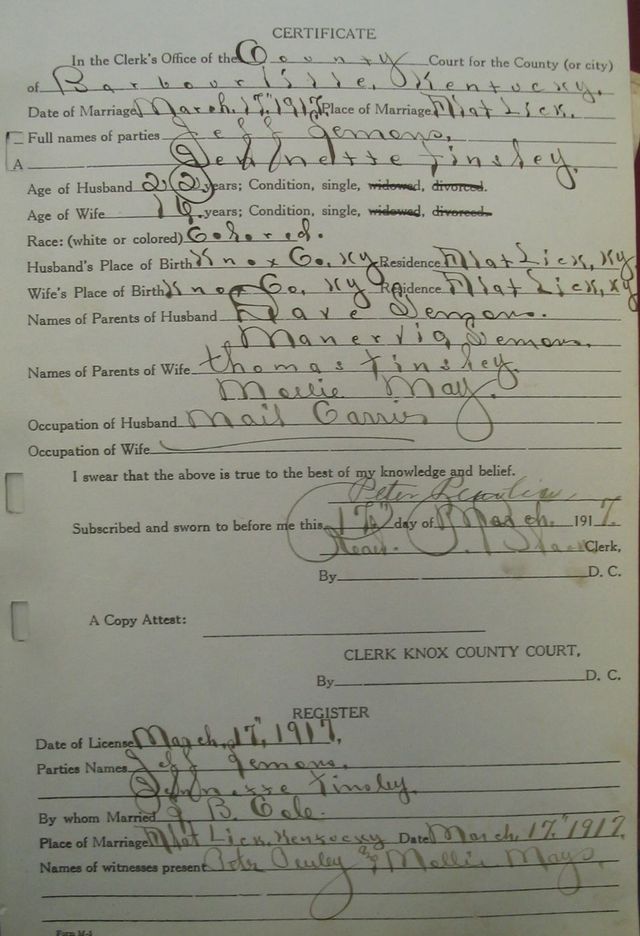 CERTIFICATE
In the Clerk's Office of the County Court for the County (or city)
of Barbourville, Kentucky.
Date of Marriage March, 17", 1917, Place of Marriage Flat Lick.
Full names of parties Jeff Jemons,
A Jennette Tinsley,
Age of Husband 22 years; Condition, single, widowed, divorced.
Age of Wife 16 years; Condition, single, widowed, divorced.
Race: (white or colored) Colored.
Husband's Place of Birth Knox Co, Ky Residence Flat Lick, Ky
Wife's Place of Birth Knox Co, Ky Residence Flat Lick, Ky
Names of Parents of Husband Dave Jemons.
Manervia Jemons,
Names of Parents of Wife Thomas Tinsley.
Mollie May.
Occupation of Husband Mail Carrier
Occupation of Wife
I swear that the above is true to the best of my knowledge and belief.
Peter
Subscribed and sworn to before me this 17" day of March. 1917.
Clerk,
By D. C.
A Copy Attest:
CLERK KNOX COUNTY COURT,
By D. C.
REGISTER
Date of License March, 17", 1917,
Parties Names Jeff Jemons,
Jennette Tinsley.
By whom Married J. B. Cole.
Place of Marriage Flat Lick, Kentucky Date March. 17." 1917,
Names of witnesses present & Mollie Mays,
Form M-1